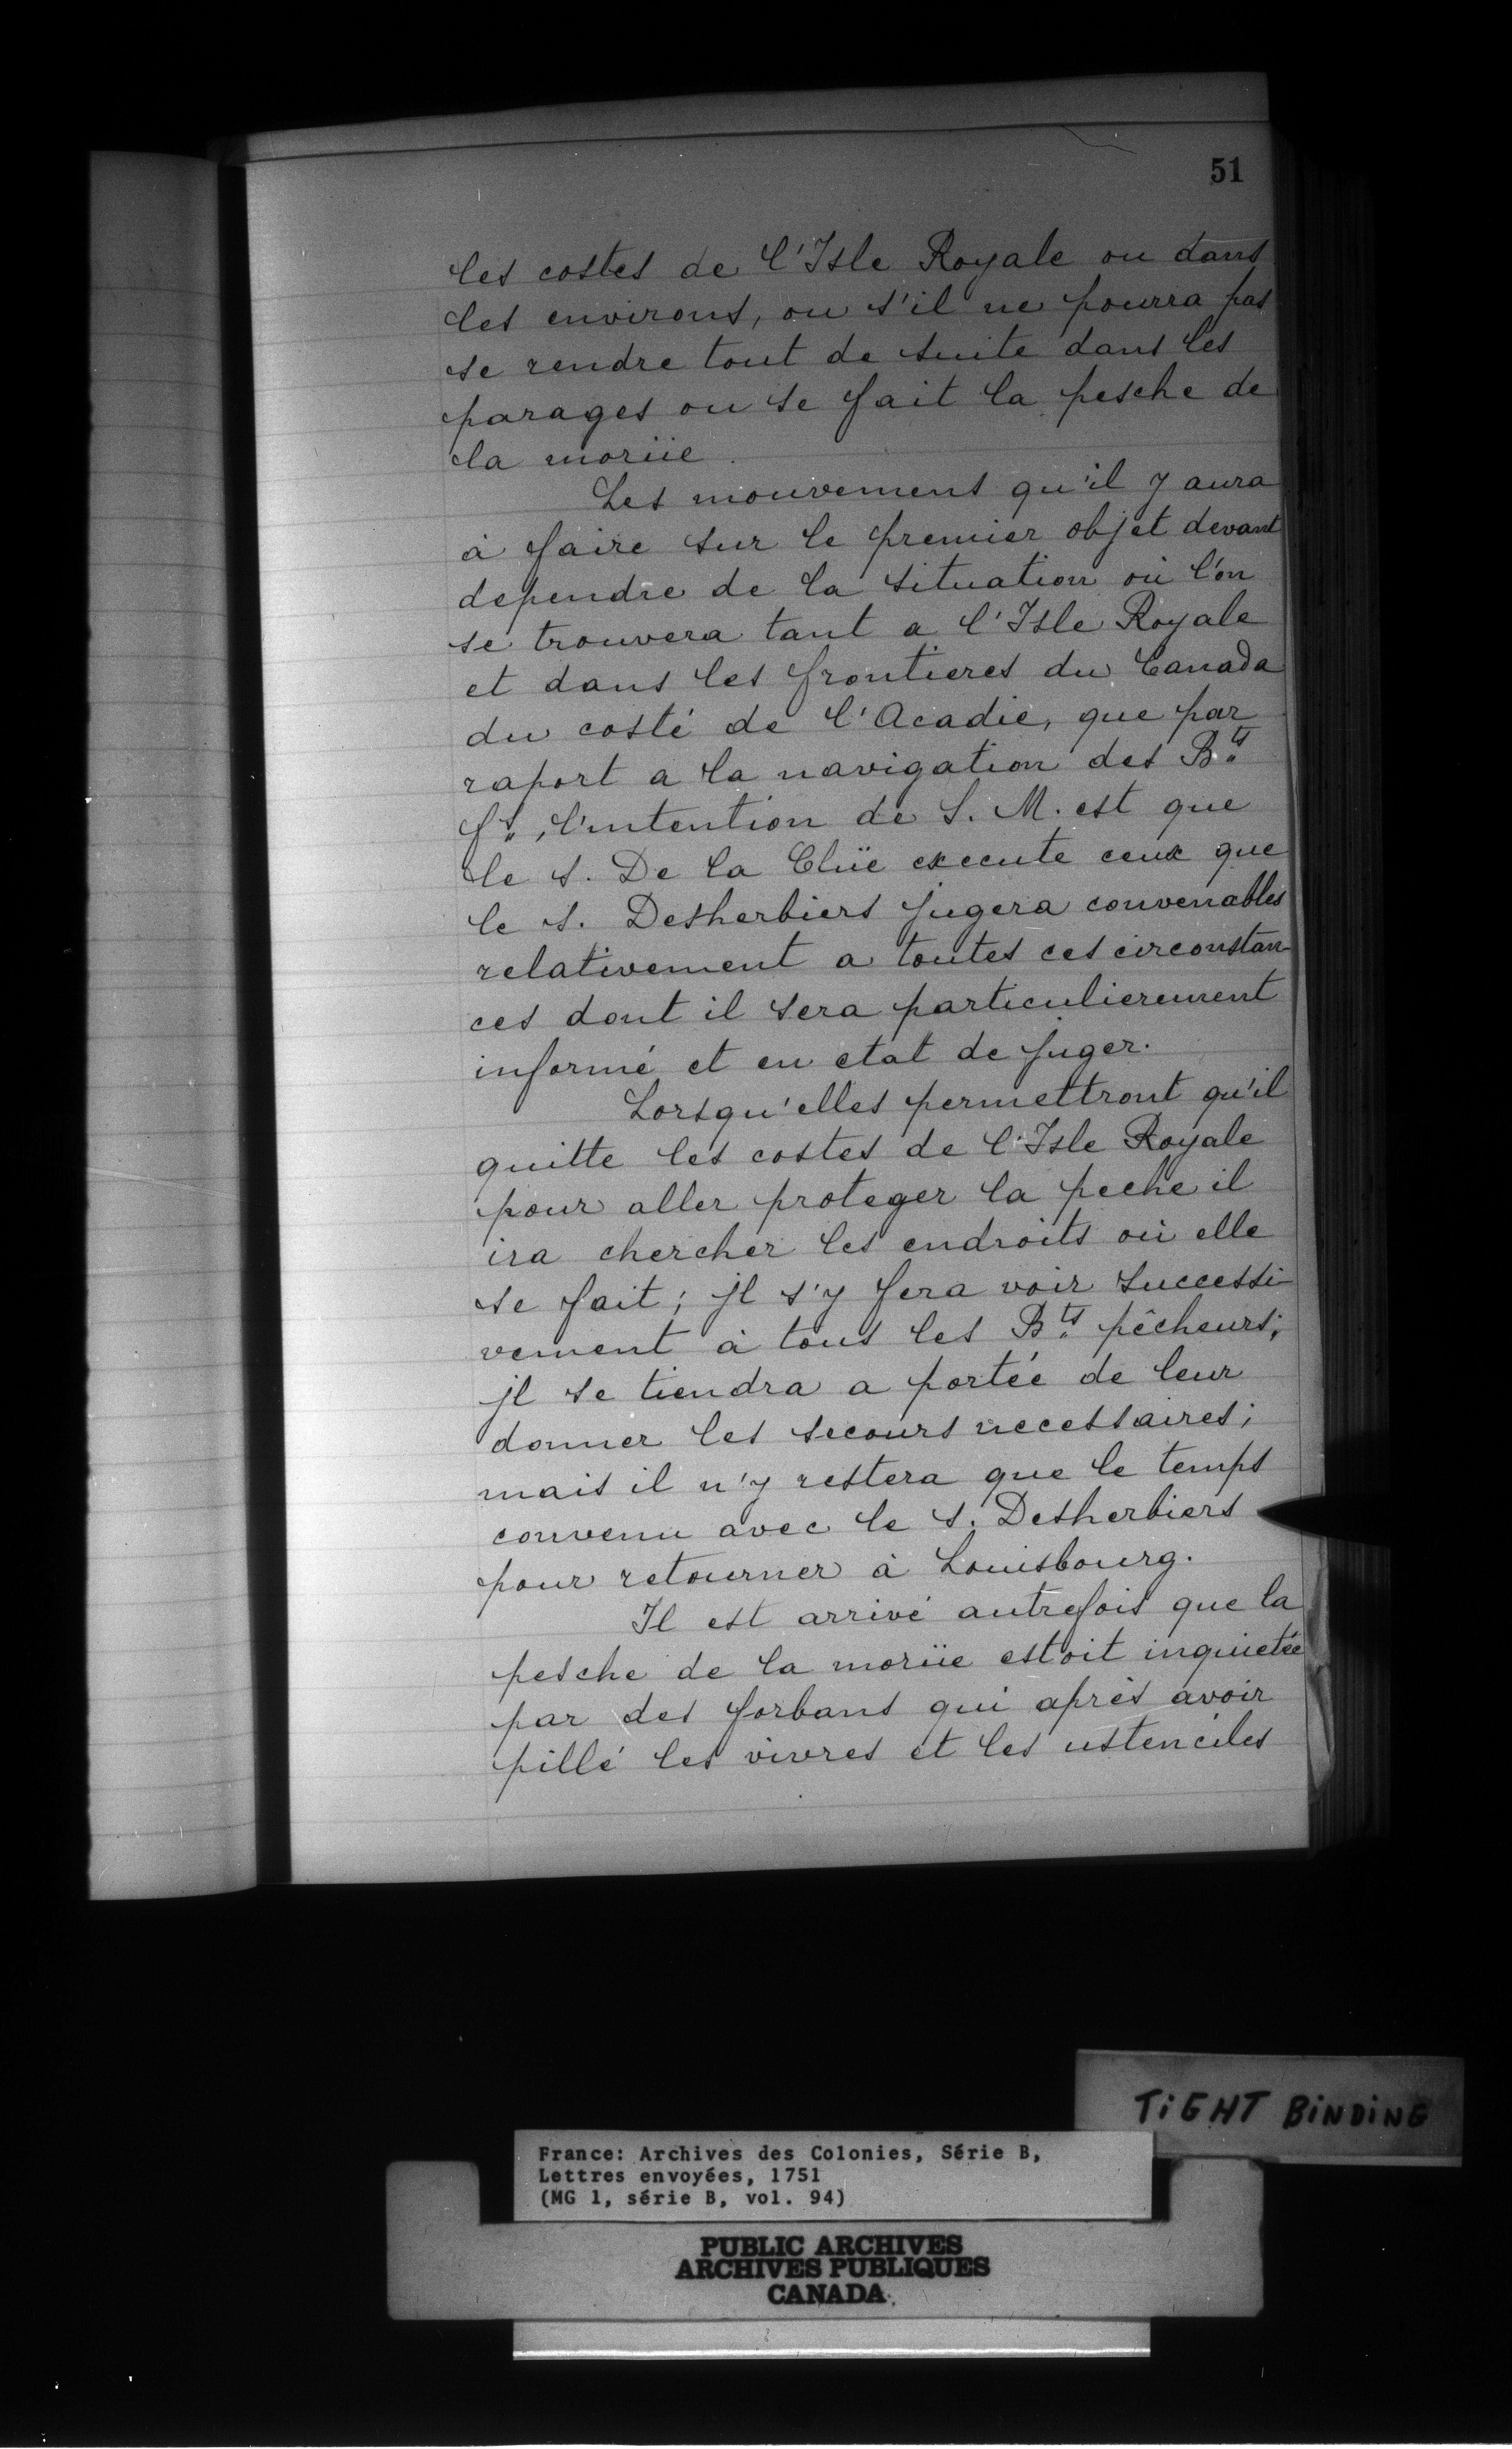 51
les costes de l'Isle Royale ou dans
les environs, ou s'il ne pourra pas
se rendre tout de suite dans les
parages ou se fait la pesche de
la moriie.
Les mouvemens qu'il y aura
à faire sur le premier objet devant
dependre de la situation où l'on
se trouvera tant a l'Isle Royale
et dans les frontieres du Canada
du costé de l'Acadie, que par
raport a la navigation des B.ts
f.s, l'intention de S. M. est que
le s. De la Clüe execute ceux que
le s. Desherbiers jugera convenables
relativement a toutes ces circonstan-
ces dont il sera particulierement
informé et en etat de juger.
Lorsqu'elles permettront qu'il
quitte les costes de l'Isle Royale
pour aller proteger la peche il
ira chercher les endroits où elle
se fait; jl s'y fera voir successi-
vement à tous les B.ts pêcheurs;
jl se tiendra a portée de leur
donner les secours necessaires;
mais il n'y restera que le temps
convenu avec le s. Desherbiers
pour retourner à Louisbourg.
Il est arrivé autrefois que la
pesche de la moriie estoit inquietée
par des forbans qui après avoir
pillé les vivres et les ustenciles
TIGHT BINDING
France: Archives des Colonies, Série B,
Lettres envoyées, 1751
(MG 1, série B, vol. 94)
PUBLIC ARCHIVES
ARCHIVES PUBLIQUES
CANADA